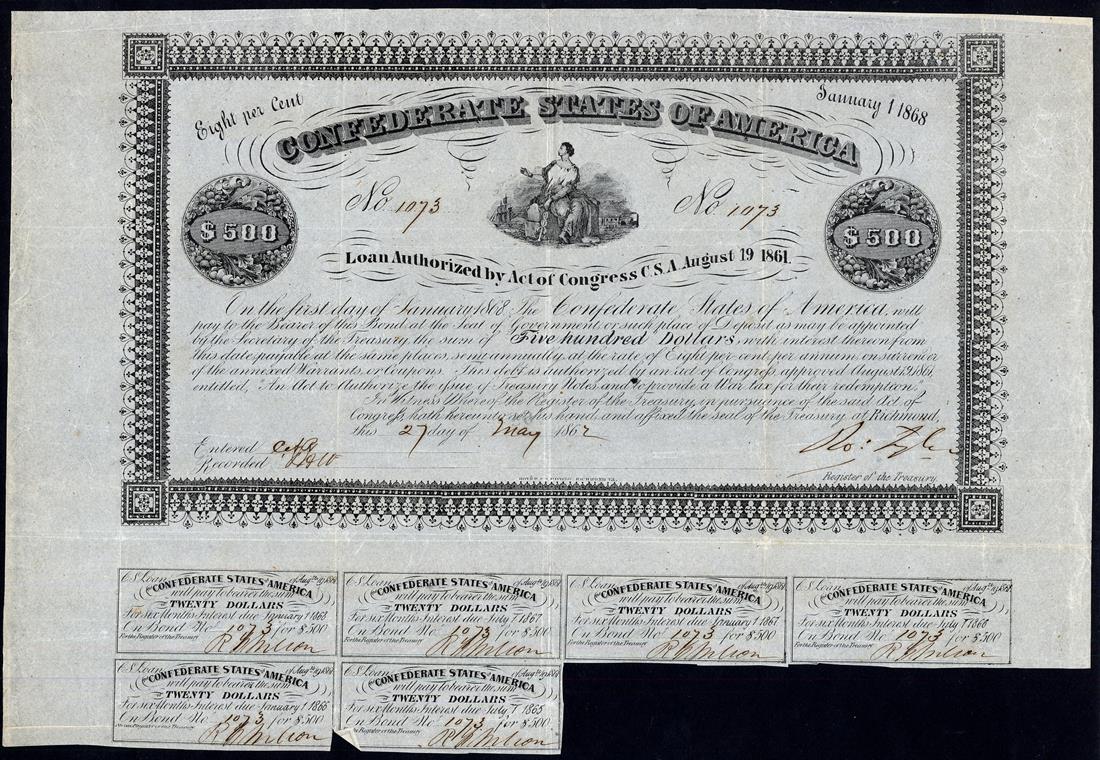 Eight per Cent
January 1 1868
CONFEDERATE STATES OF AMERICA
No 1073
No 1073
$500
$500
Loan Authorized by Act of Congress C.S.A. August 19 1861.
On the first day of January 1868 The Confederate States of America, will
pay to the Bearer of this Bond, at the Seat of Government, or such place of Deposit as may be appointed
by the Secretary of the Treasury, the sum of Five hundred Dollars, with interest thereon from
this date, payable at the same places, semi annually, at the rate of Eight per-cent per annum, on surrender
of the annexed Warrants, or Coupons. This debt is authorized by an act of Congress, approved August 19, 1861,
entitled, "An Act to Authorize the issue of Treasury Notes, and to provide a War tax for their redemption."
In Witness Whereof the Register of the Treasury, in pursuance of the said Act of
Congress, hath hereunto set his hand, and affixed the seal of the Treasury, at Richmond,
this 27 day of May 1862
Entered
Recorded
Ro: Tyler
Register of the Treasury.
RICHMOND VA.
C S Loan of Augth 19 1861
CONFEDERATE STATES OF AMERICA
will pay to bearer the sum
TWENTY DOLLARS
For six Months Interest due January 1 1868
On Bond No. 1073 for $500
For the Register of the Treasury
C S Loan of Augth 19 1861
CONFEDERATE STATES OF AMERICA
will pay to bearer the sum
TWENTY DOLLARS
For six Months Interest due July 1 1867
On Bond No. 1073 for $500
For the Register of the Treasury
C S Loan of Augth 19 1861
CONFEDERATE STATES OF AMERICA
will pay to bearer the sum
TWENTY DOLLARS
For six Months Interest due January 1 1867
On Bond No. 1073 for $500
For the Register of the Treasury
C S Loan of Augth 19 1861
CONFEDERATE STATES OF AMERICA
will pay to bearer the sum
TWENTY DOLLARS
For six Months Interest due July 1 1866
On Bond No. 1073 for $500
For the Register of the Treasury
C S Loan of Augth 19 1861
CONFEDERATE STATES OF AMERICA
will pay to bearer the sum
TWENTY DOLLARS
For six Months Interest due January 1 1866
On Bond No. 1073 for $500
For the Register of the Treasury
C S Loan of Augth 19 1861
CONFEDERATE STATES OF AMERICA
will pay to bearer the sum
TWENTY DOLLARS
For six Months Interest due July 1 1865
On Bond No. 1073 for $500
For the Register of the Treasury